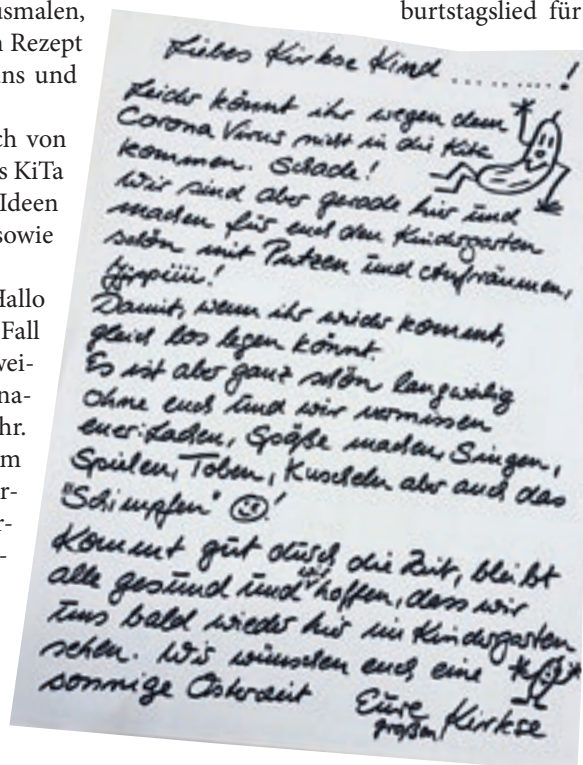 usmalen,
n Rezept
uns und
ch von
s KiTa
Ideen
sowie
Hallo
Fall
wei-
na-
hr.
m
r-
r-
-
burtstagslied für
Liebes Kirkse Kind ........!
Leider könnt ihr wegen dem
Corona Virus nicht in die Kita
kommen. Schade!
Wir sind aber gerade hier und
machen für euch den Kindergarten
schön mit Putzen und Aufräumen,
Hippiiii!
Damit, wenn ihr wieder kommt,
gleich los legen könnt.
Es ist aber ganz schön langweilig
ohne euch und wir vermissen
euer: Lachen, Späße machen, Singen,
Spielen, Toben, Kuscheln aber auch das
"Schimpfen" !
Kommt gut durch die Zeit, bleibt
alle gesund und wir hoffen, dass wir
uns bald wieder hier im Kindergarten
sehen. Wir wünschen euch eine
sonnige Osterzeit
Eure großen Kirkse